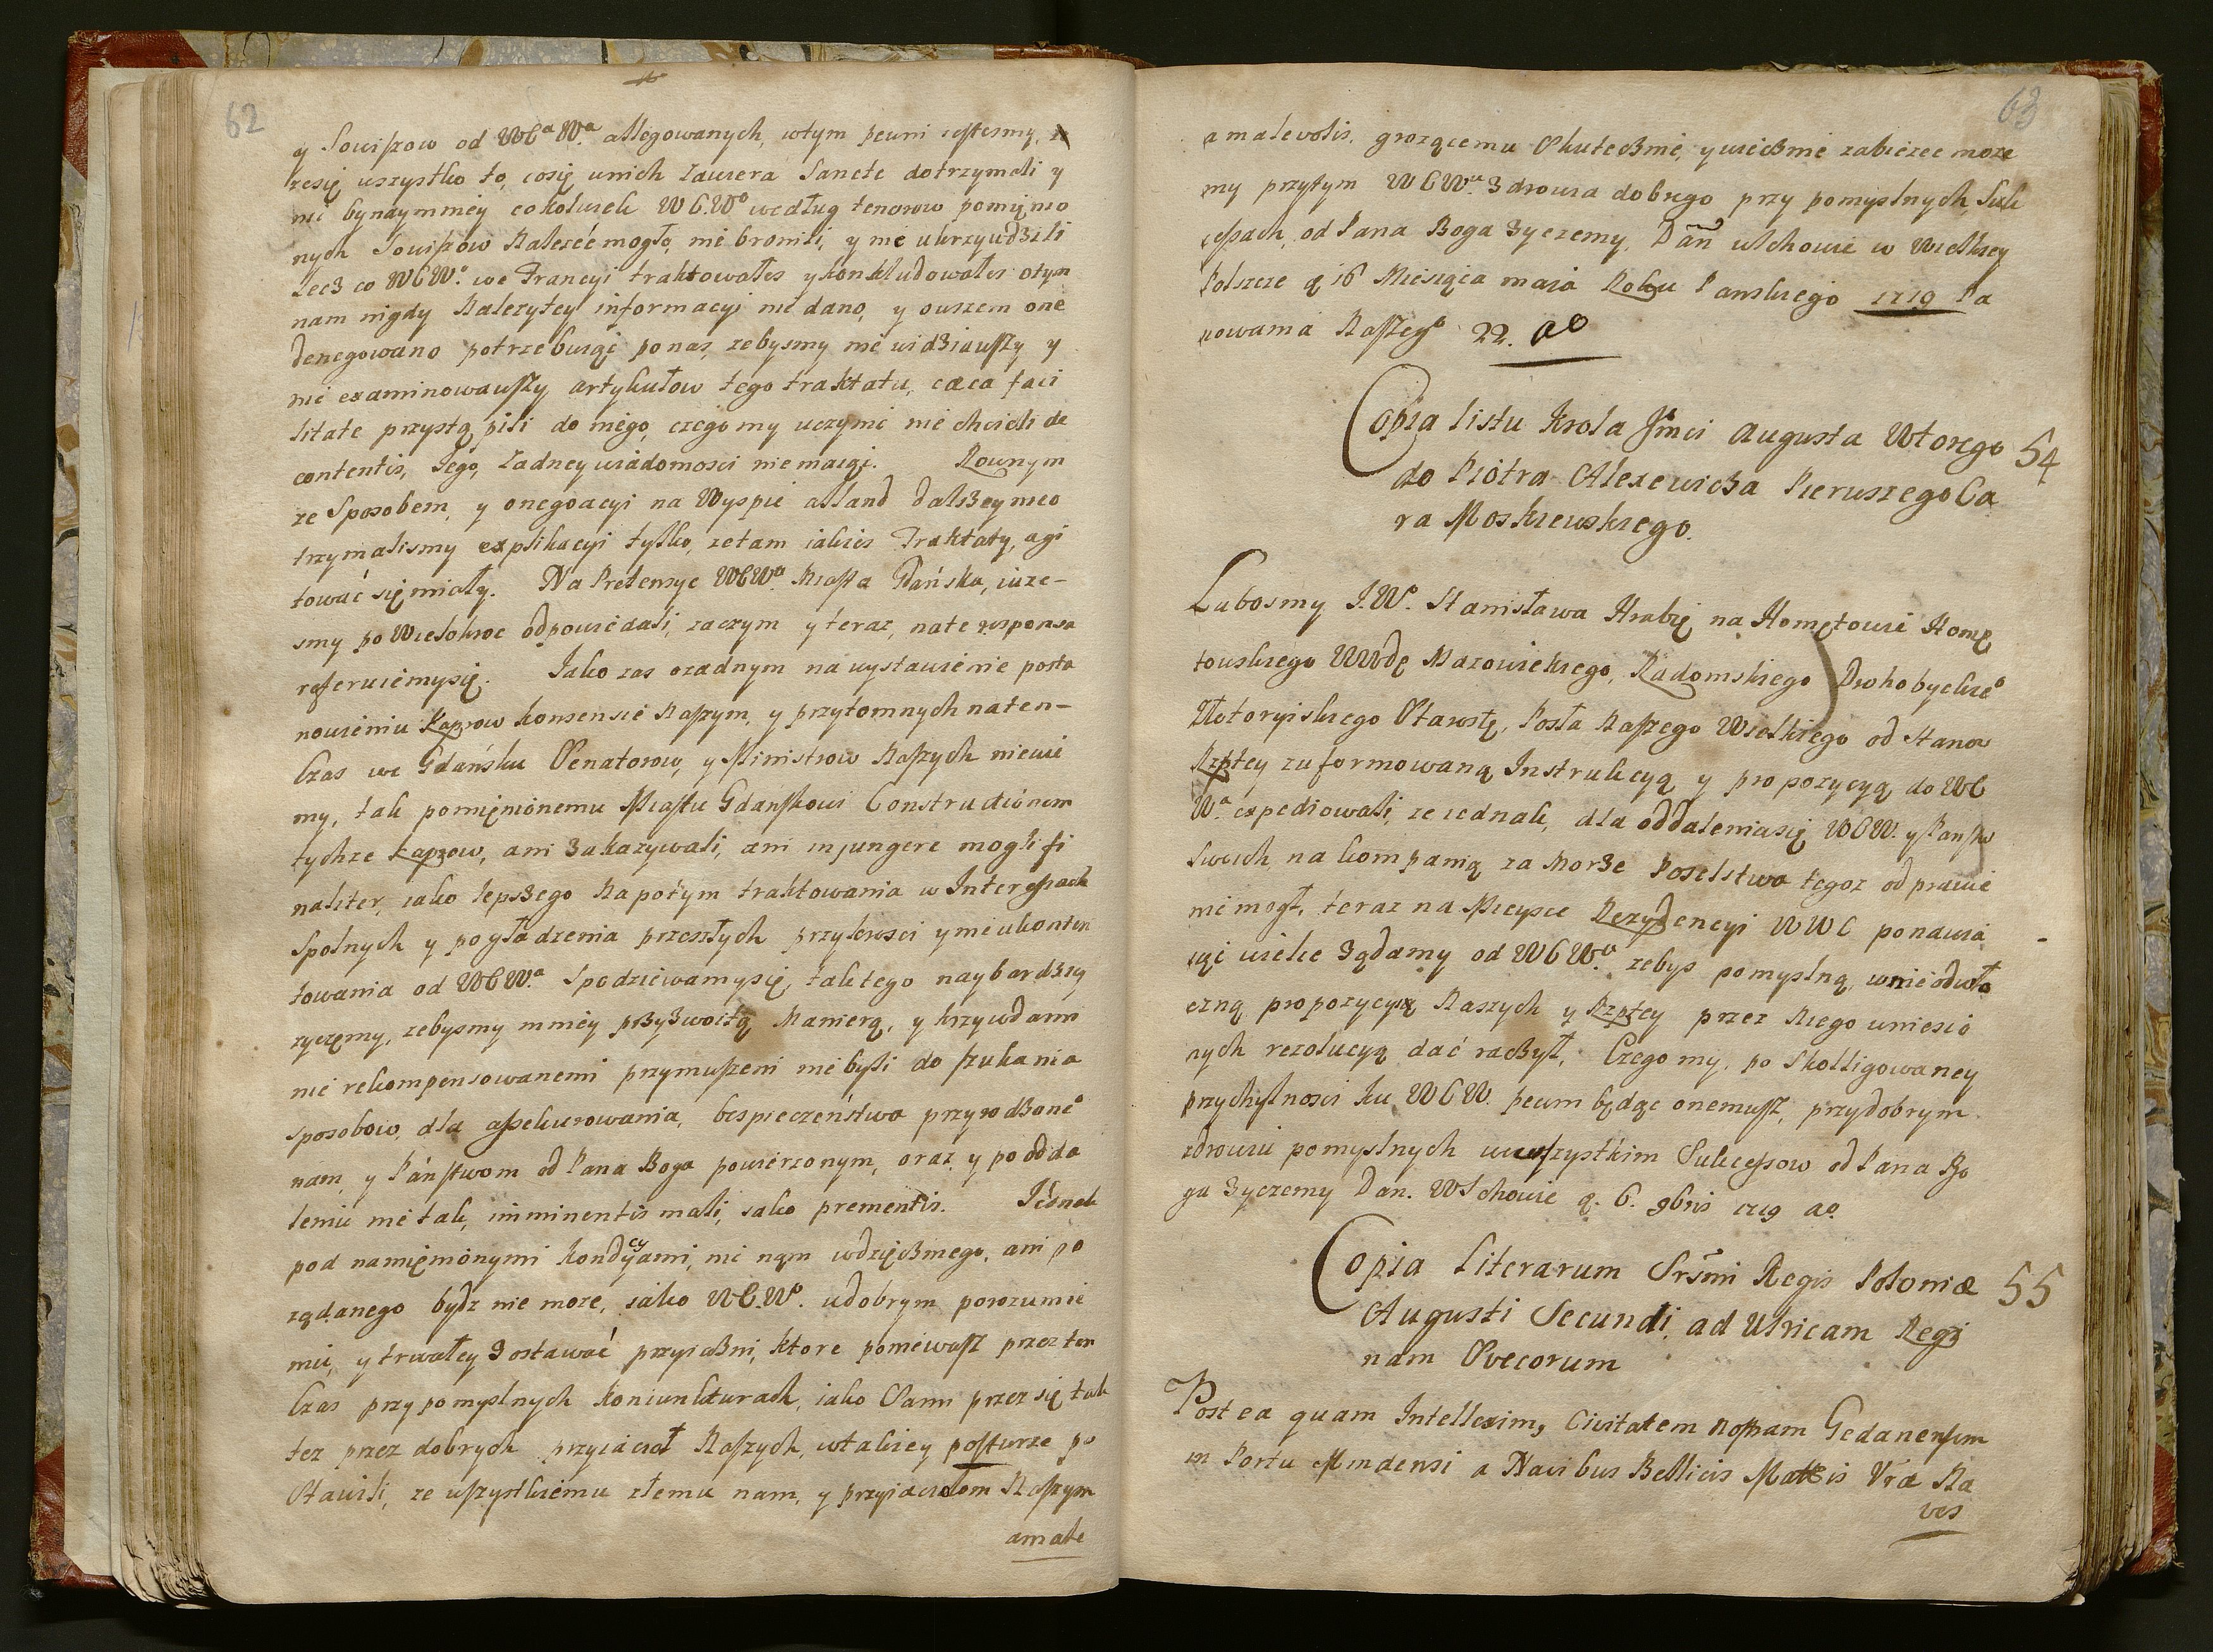 62
y Sowiszow od WCa Wa. allegowanych, wtym pewni iestesmy,
zesię wszystko to, cosię wnich zawiera Sancte dotrzymali y
nic bynaymniey cokolwiek WC.Wo według tenorow pomięnio
nych Sowiszow Należeć mogło, nie bronili, y nie ukrzywdzili
Lecz co WCWo. we Francyi traktowałes y konkludowałes otym
nam nigdy Należytey informacyi nie dano, y owszem one
denegowano potrzebuiąc ponas, zebysmy nie widziawszy y
nie examinowawszy artykułow tego traktatu, cæca faci
litate przystąpili do niego, czego my uczynić nie chcieli de
contentis, Jego, Zadney wiadomosci nie maiąc. Rownym
ze Sposobem, y onegoacyi na Wyspie alland dalszey nieo
trzymalismy explikacyi tylko, zetam iakies Traktaty, agi
tować się miały. Na Pretensye WCWa. Miasta Gdańska, iuze-
smy po Wielokroc odpowiedali, zaczym y teraz, nate responsa
referuiemysię. Jako zas ozadnym na wystawienie posta
nowieniu Kaprow konsensie Naszym, y przytomnych naten-
Czas we Gdańsku Senatorow, y Ministrow Naszych niewie
my, tak pomięnionemu Miastu Gdańskowi Constructionem
tychze Kaprow, ani zakazywali, ani injungere mogli fi
naliter, iako lepszego Napotym traktowania w Interessach
Spolnych y pogładzenia przeszłych przykrosci y nieukonten
towania od WCWa. Spodziewamysię, tak tego naybardziey
zyczemy, zebysmy mniey przyzwoitą Manierą, y krzywdami
nie rekompensowanemi przymuszeni nie byli do szukania
sposobow, dla assekurowania, bespieczeństwa przyrodzoneo
nam, y Państwom od Pana Boga powierzonym, oraz y po odda
leniu nie tak, imminentis mali, iako prementis. Jednak
pod namięnionymi kondycyami, nic nąm wdzięcznego, ani po
ządanego bydz nie moze, iako WC.Wo. wdobrym porozumie
niu, y trwałey zostawać przyiazni, ktore poniewasz przez ten
Czas przy pomyslnych koniunkturach, iako Sami przez się tak
tez przez dobrych przyiacioł Naszych, wtakiey posturze po
Stawili, ze wszystkiemu złemu nam, y przyiaciołom Naszym
amale
63
amalevolis, grozącemu Skutecznie, y wiecznie zabiezec moze
my przytym WCWa. zdrowia dobrego przy pomyslnych, Suk
cessach, od Pana Boga zyczemy. Dan wschowie w Wielkiey
Polszcze d 16 Miesiąca maia Roku Panskiego 1719 Pa
nowania Naszego 22. ao
Copia listu Krola Jmci Augusta Wtorego 54
do Piotra Alexewicza Pierwszego Ca
ra Moskiewskiego.
Lubosmy J.Wo. Stanisława Hrabię na Homętowie Homę
towskiego WWdę Mazowiekiego, Radomskiego Drohobyckieo
Złotoryiskiego Starostę, Posła Naszego Wielkiego od Stanow
Rzptey zuformowaną Instrukcyą y propozycyą do WC
Wa. expediowali, ze iednak, dla oddaleniasię WCW. y Państw
swoich, na kompanią za Morze Poselstwa tegoz odprawić
nie mogł, teraz na Mieysce Rezydencyi WWC ponawia
iąc wielce ządamy od WCWa. zebys pomyslną, wnieodwło
czną propozycyą Naszych y Rzptey przez Niego uniesio
nych rezolucyą dać raczył, Czego my, po Skolligowaney
przychylnosci ku WCW. pewni będąc onemusz, przydobrym
zdrowiu pomyslnych wewszystkim Sukcessow od Pana Bo
ga zyczemy Dan. WSchowie d. 6. 9bris 1719 ao.
Copia Literarum Srsmi Regis Poloniæ 55
Augusti Secundi, ad Ulricam Regi
nam Svecorum
Postea quam Intelleximus, Civitatem nostram Gedanensem
in Portu Mindensi a Navibus Bellicis Mattis Vræ Na
ves